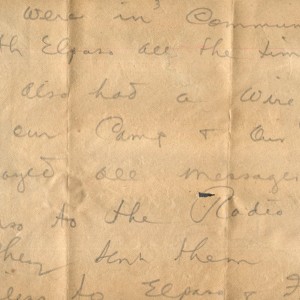 were in Commun
th Elpaso all the tim
also had a Wire
our Camp & Our
all messages
so to the Radio
they sent them
to Elpaso &